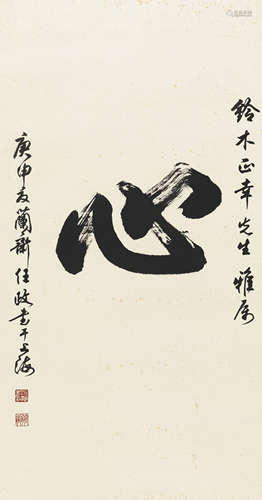 鈴木正幸先生雅屬
心
庚申友蘭齋任政書于上海